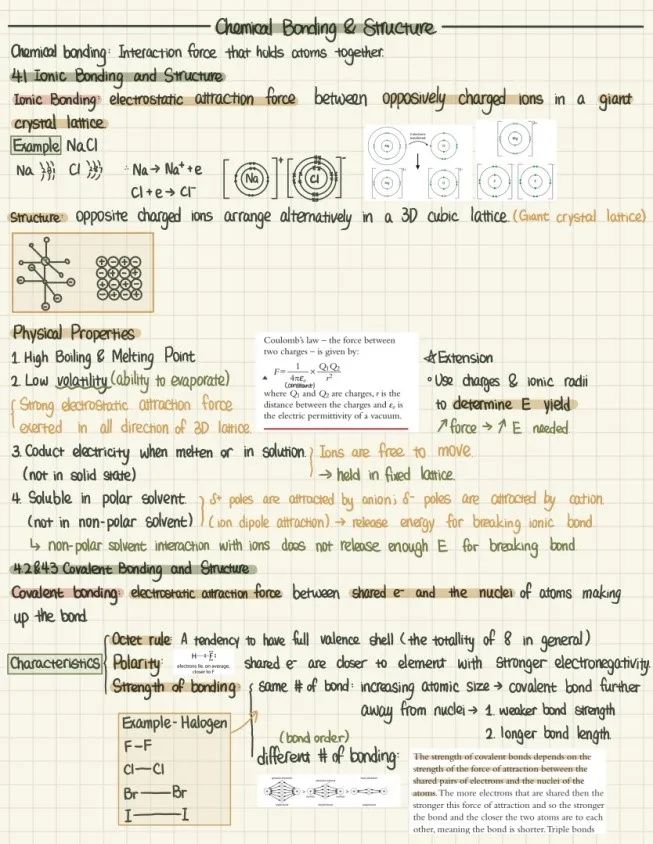 Chemical Bonding & Structure
Chemical bonding: Interaction force that holds atoms together.
4.1 Ionic Bonding and Structure
Ionic Bonding: electrostatic attraction force between opposively charged ions in a giant
crystal lattice
Example NaCl
Na Cl ∴ Na → Na⁺ + e
Cl + e → Cl⁻
Na + Cl -
Structure: opposite charged ions arrange alternatively in a 3D cubic lattice. (Giant crystal lattice)
Physical Properties
1. High Boiling & Melting Point
2. Low volatility (ability to evaporate)
Strong electrostatic attraction force
exerted in all direction of 3D lattice.
Coulomb's law – the force between
two charges – is given by:
F = 1/4πεₒ × Q₁Q₂/r²
(constant)
where Q₁ and Q₂ are charges, r is the
distance between the charges and εₒ is
the electric permittivity of a vacuum.
☆ Extension
° Use charges & ionic radii
to determine E yield
↗ force → ↗ E needed
3. Coduct electricity when melten or in solution. } Ions are free to move.
(not in solid state) → held in fixed lattice.
4. Soluble in polar solvent } δ+ poles are attracted by anion; δ- poles are attracted by cation.
(not in non-polar solvent) (ion dipole attraction) → release energy for breaking ionic bond.
↳ non-polar solvent interaction with ions does not release enough E for breaking bond.
4.2&4.3 Covalent Bonding and Structure
Covalent bonding: electrostatic attraction force between shared e⁻ and the nuclei of atoms making
up the bond.
Characteristics
Octet rule: A tendency to have full valence shell (the totallity of 8 in general)
Polarity: shared e⁻ are closer to element with stronger electronegativity.
electrons lie, on average,
closer to F
Strength of bonding { same # of bond: increasing atomic size → covalent bond further
away from nuclei → 1. weaker bond strength
2. longer bond length.
Example - Halogen
F-F
Cl—Cl
Br——Br
I———I
(bond order)
different # of bonding:
The strength of covalent bonds depends on the
strength of the force of attraction between the
shared pairs of electrons and the nuclei of the
atoms. The more electrons that are shared then the
stronger this force of attraction and so the stronger
the bond and the closer the two atoms are to each
other, meaning the bond is shorter. Triple bonds